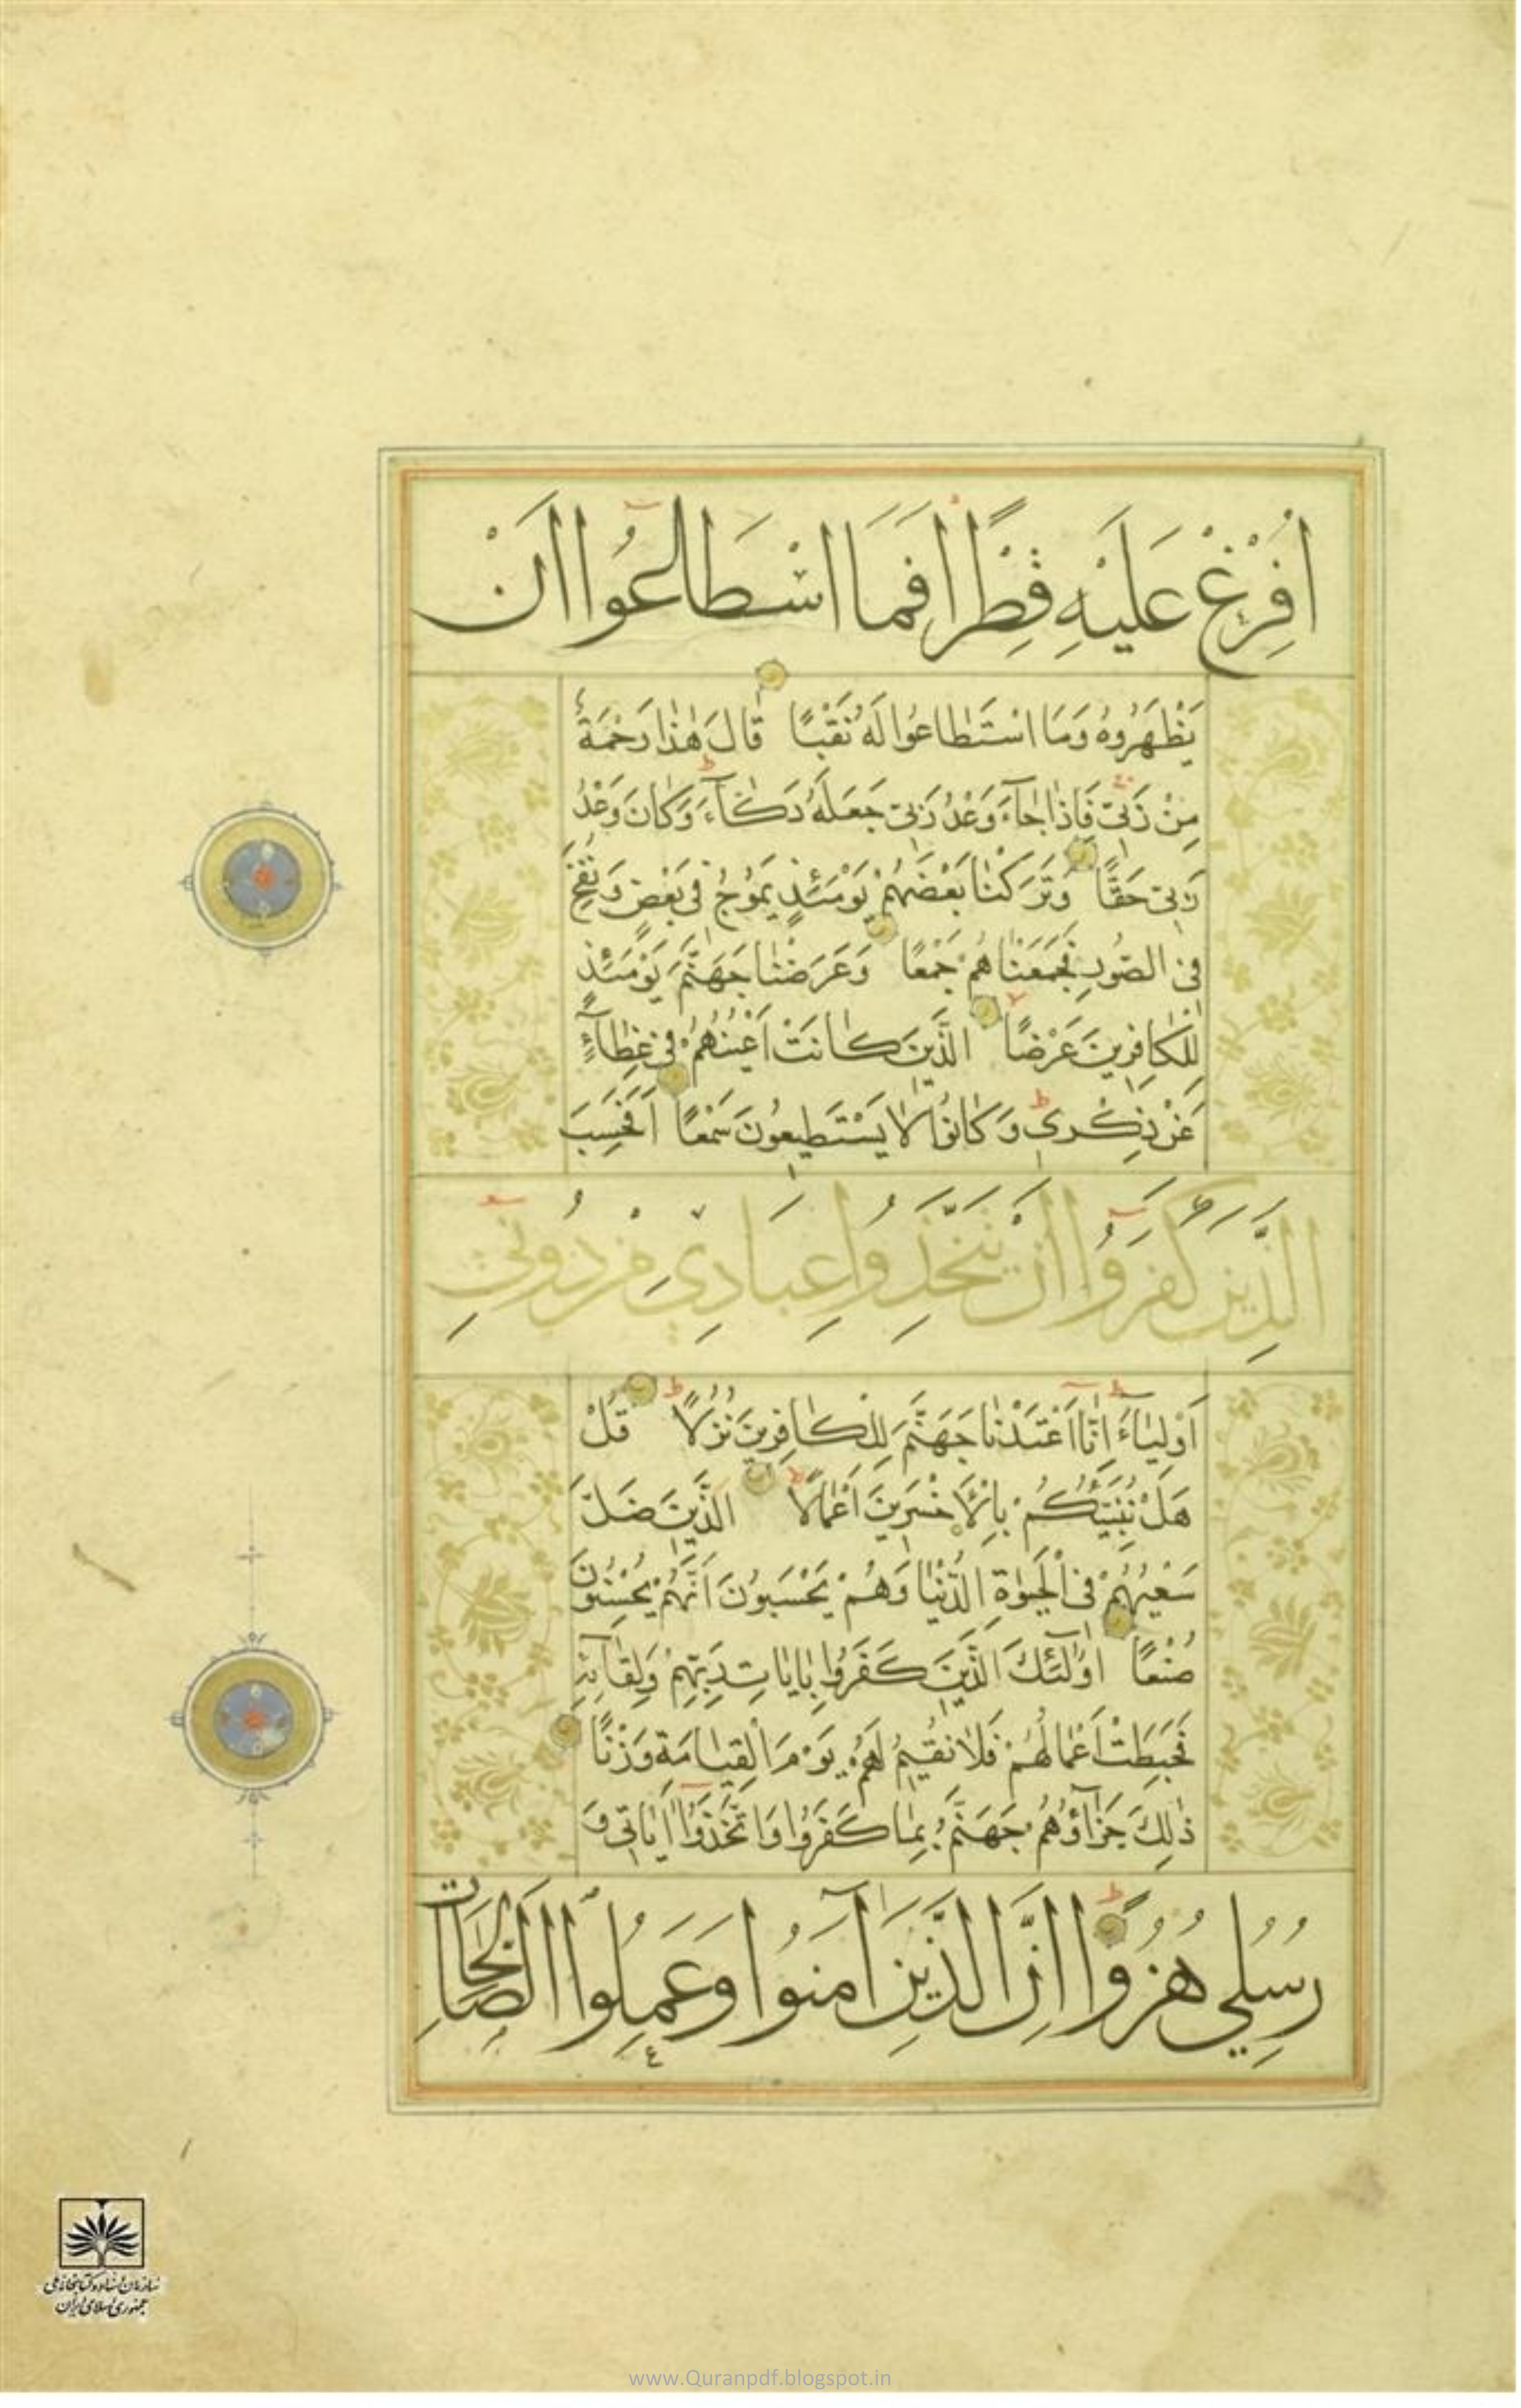 اُفْرِغْ عَلَيْهِ قِطْرًا فَمَا اسْطَاعُوا اَنْ
يَظْهَرُوهُ وَمَا اسْتَطَاعُوا لَهُ نَقْبًا قَالَ هٰذَا رَحْمَةٌ
مِنْ رَبّى فَاِذَا جَآءَ وَعْدُ رَبّى جَعَلَهُ دَكَّآءَ وَكَانَ وَعْدُ
رَبّى حَقًّا وَتَرَكْنَا بَعْضَهُمْ يَوْمَئِذٍ يَمُوجُ فى بَعْضٍ وَنُفِخَ
فِى الصُّورِ فَجَمَعْنَاهُمْ جَمْعًا وَعَرَضْنَا جَهَنَّمَ يَوْمَئِذٍ
لِلْكَافِرينَ عَرْضًا اَلَّذينَ كَانَتْ اَعْيُنُهُمْ فى غِطَآءٍ
عَنْ ذِكْرى وَكَانُوا لَا يَسْتَطيعُونَ سَمْعًا اَفَحَسِبَ
الَّذِينَ كَفَرُوا اَنْ يَتَّخِذُوا عِبَادِي مِنْ دُونِي
اَوْلِيَآءَ اِنَّا اَعْتَدْنَا جَهَنَّمَ لِلْكَافِرينَ نُزُلًا قُلْ
هَلْ نُنَبِّئُكُمْ بِالْاَخْسَرينَ اَعْمَالًا اَلَّذينَ ضَلَّ
سَعْيُهُمْ فِى الْحَيٰوةِ الدُّنْيَا وَهُمْ يَحْسَبُونَ اَنَّهُمْ يُحْسِنُونَ
صُنْعًا اُولٰٓئِكَ الَّذينَ كَفَرُوا بِاٰيَاتِ رَبِّهِمْ وَلِقَآئِهِ
فَحَبِطَتْ اَعْمَالُهُمْ فَلَا نُقيمُ لَهُمْ يَوْمَ الْقِيَامَةِ وَزْنًا
ذٰلِكَ جَزَآؤُهُمْ جَهَنَّمُ بِمَا كَفَرُوا وَاتَّخَذُوا اٰيَاتى وَ
رُسُلِي هُزُوًا اِنَّ الَّذِينَ آمَنُوا وَعَمِلُوا الصَّالِحَاتِ
ع
سازمان اسناد و کتابخانه ملی
جمهوری اسلامی ایران
www.Quranpdf.blogspot.in